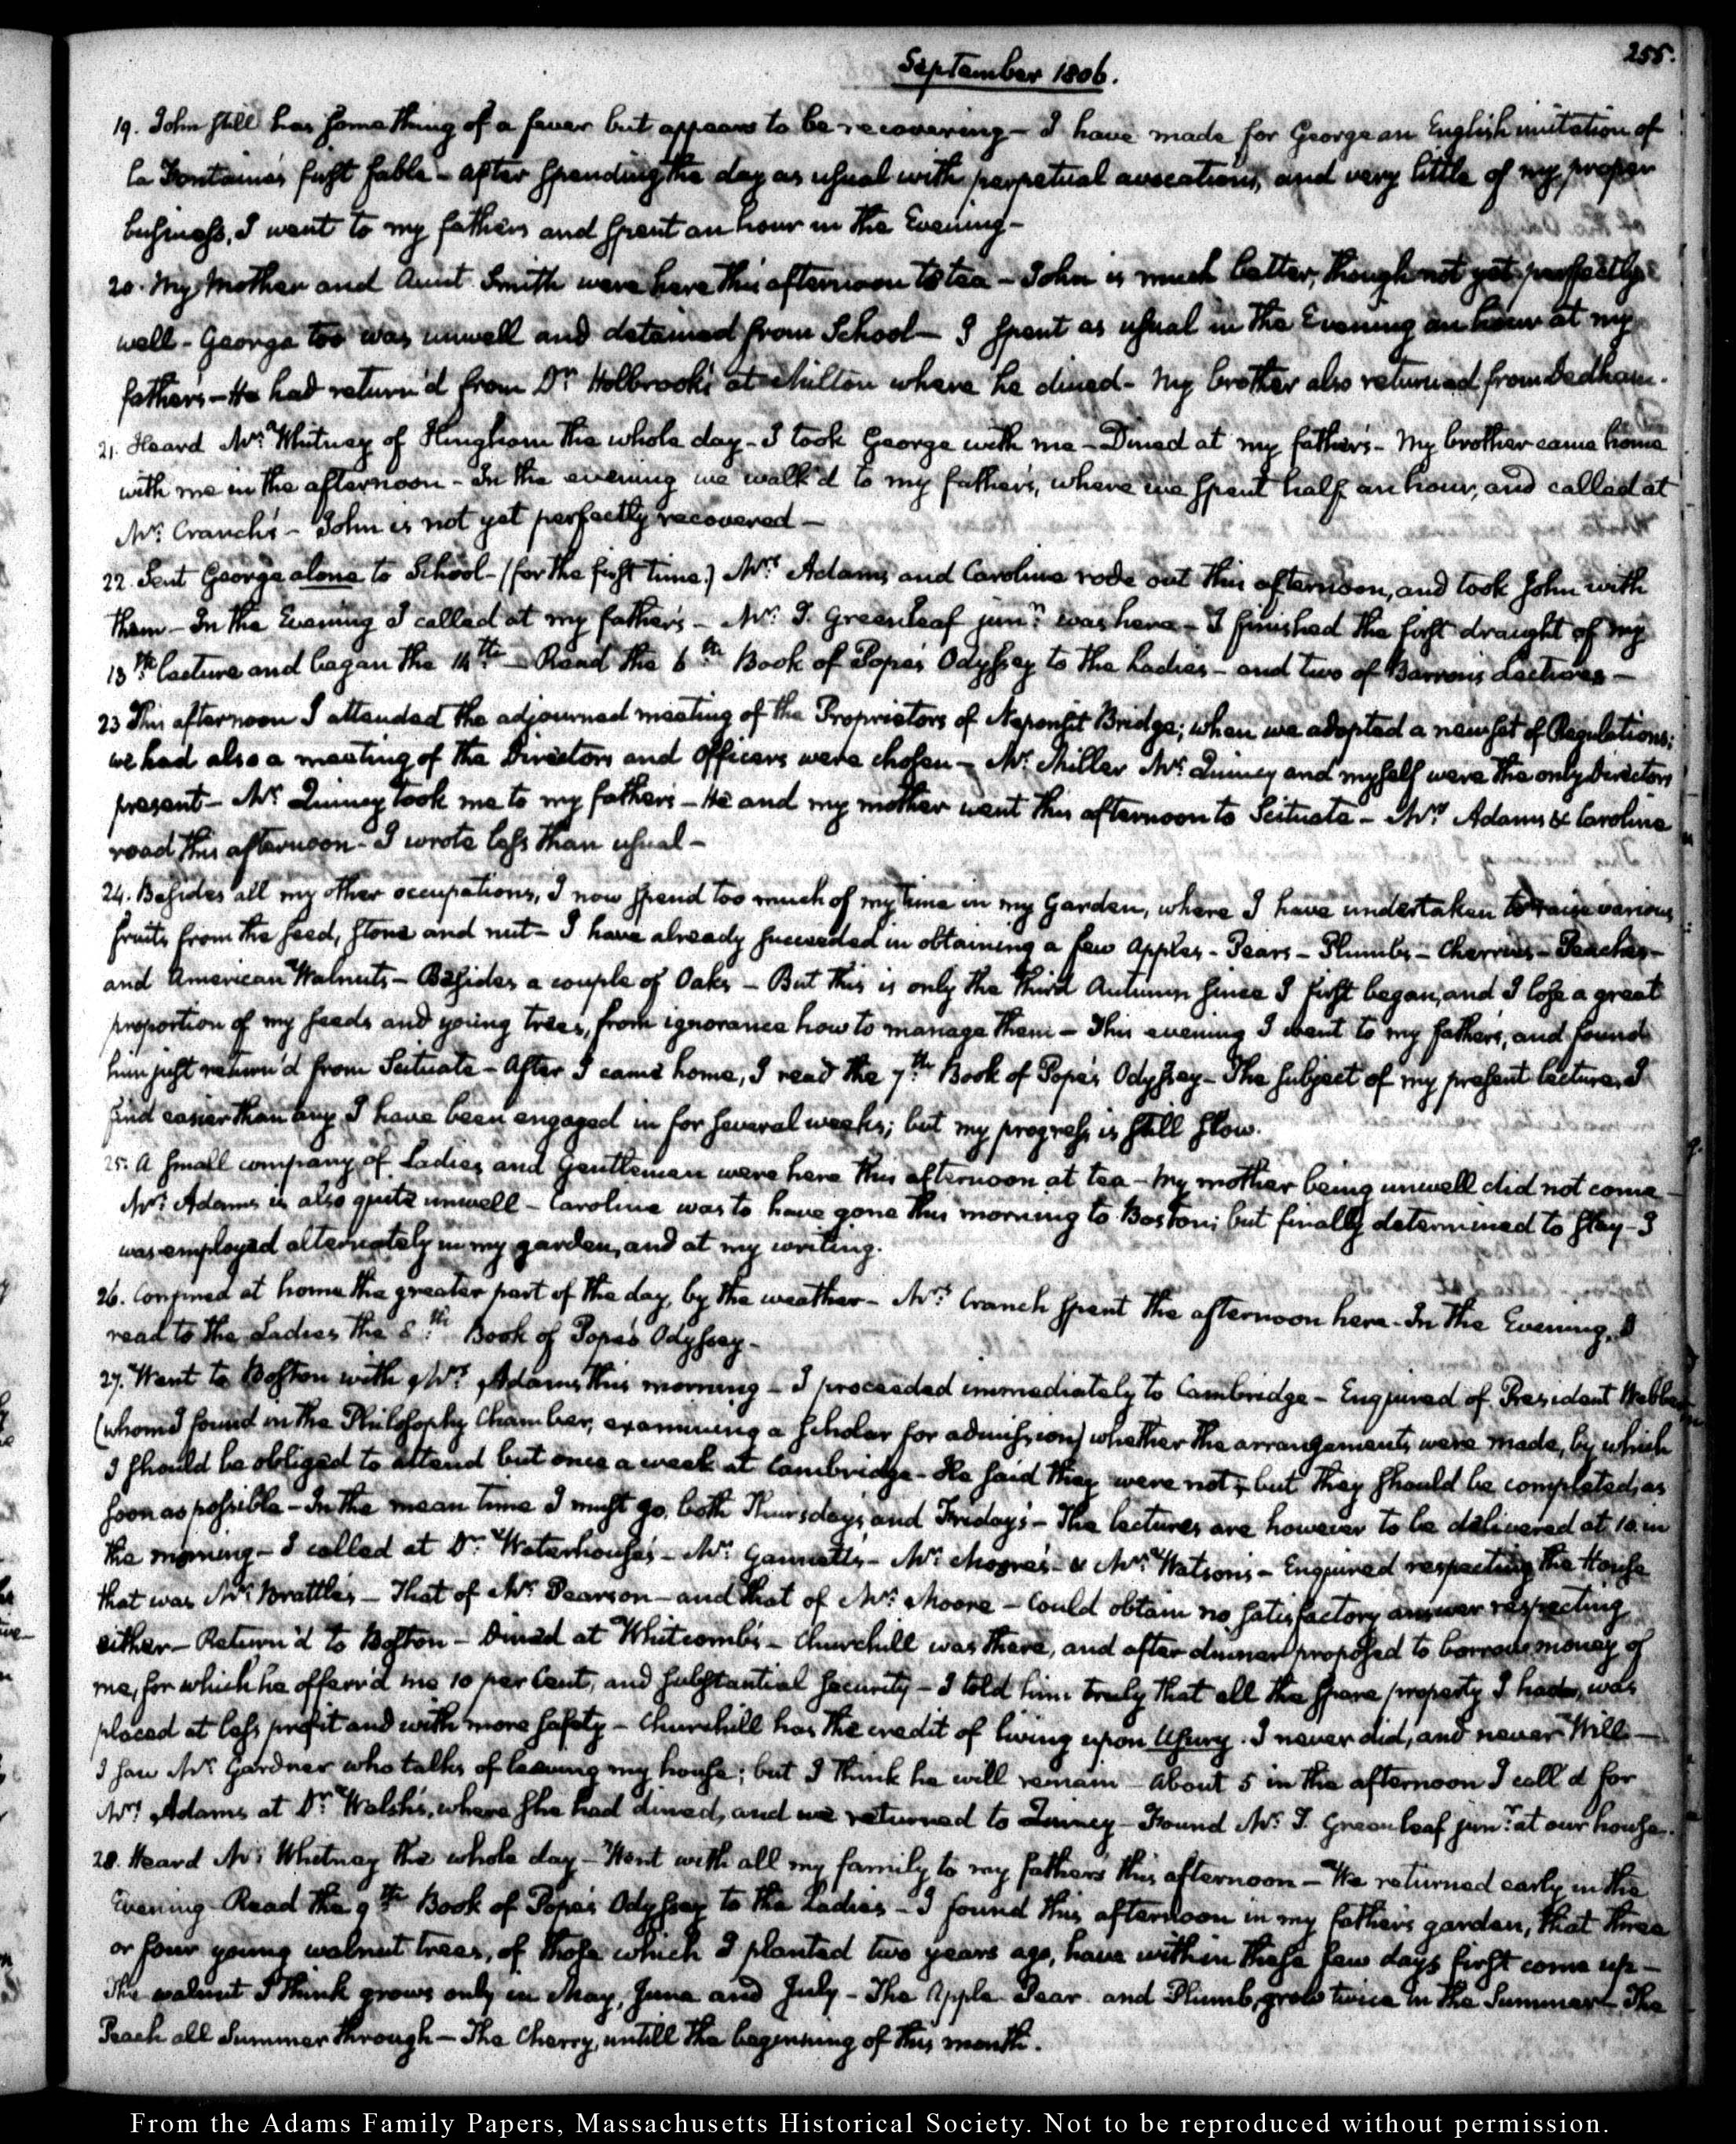 September 1806.
255.
19. John still has something of a fever but appears to be recovering - I have made for George an English imitation of
la Fontaine's first fable - After spending the day as usual with perpetual avocations, and very little of my proper
business, I went to my fathers and spent an hour in the Evening -
20. My Mother and Aunt Smith were here this afternoon to tea - John is much better, though not yet perfectly
well - George too was unwell and detained from School - I spent as usual in the Evening an hour at my
father's - He had return'd from Dr. Holbrook's at Milton where he dined - My brother also returned from Dedham.
21. Heard Mr. Whitney of Hingham the whole day - I took George with me - Dined at my father's - My brother came home
with me in the afternoon - In the evening we walk'd to my father's, where we spent half an hour, and called at
Mr. Cranch's - John is not yet perfectly recovered -
22. Sent George alone to School - (for the first time.) Mrs. Adams and Caroline rode out this afternoon, and took John with
them - In the Evening I called at my father's - Mr. T. Greenleaf junr. was here - I finished the first draught of my
13th. lecture and began the 14th. - Read the 6th. Book of Pope's Odyssey to the Ladies - and two of Barron's Lectures -
23 This afternoon I attended the adjourned meeting of the Proprietors of Neponsit Bridge; when we adopted a new set of Regulations;
we had also a meeting of the Directors and Officers were chosen - Mr. Miller Mr. Quincy and myself were the only Directors
present - Mr. Quincy took me to my father's - He and my mother went this afternoon to Scituate - Mrs. Adams & Caroline
road this afternoon - I wrote less than usual -
24. Besides all my other occupations, I now spend too much of my time in my Garden, where I have undertaken to raise various
fruits from the seed, stone and nut - I have already succeeded in obtaining a few Apples - Pears - Plumbs - Cherries - Peaches -
and American Walnuts - Besides a couple of Oaks - But this is only the third Autumn since I first began, and I lose a great
proportion of my seeds and young trees, from ignorance how to manage them - This evening I went to my father's, and found
him just return'd from Scituate - After I came home, I read the 7th. Book of Pope's Odyssey - The subject of my present lecture, I
find easier than any I have been engaged in for several weeks; but my progress is still slow.
25. A small company of Ladies and Gentlemen were here this afternoon at tea - My mother being unwell did not come -
Mrs. Adams is also quite unwell - Caroline was to have gone this morning to Boston; but finally determined to stay - I
was employed alternately in my garden, and at my writing.
26. Confined at home the greater part of the day, by the weather - Mrs. Cranch spent the afternoon here - In the Evening, I
read to the Ladies the 8th. Book of Pope's Odyssey -
27. Went to Boston with Mrs. Adams this morning - I proceeded immediately to Cambridge - Enquired of President Webber
(whom I found in the Philosophy Chamber, examining a scholar for admission) whether the arrangements were made, by which
I should be obliged to attend but once a week at Cambridge - He said they were not; but they should be completed, as
soon as possible - In the mean time I must go, both Thursday's and Friday's - The lectures are however to be delivered at 10 in
the morning - I called at Dr. Waterhouse's - Mr. Gannett's - Mr. Moore's - & Mr. Watson's - Enquired respecting the House
that was Mr. Brattle's - That of Mr. Pearson - and that of Mr. Moore - Could obtain no satisfactory answer respecting
either - Return'd to Boston - Dined at Whitcomb's - Churchill was there, and after dinner proposed to borrow money of
me, for which he offer'd me 10 per Cent, and substantial security - I told him truly that all the spare property I had, was
placed at less profit and with more safety - Churchill has the credit of living upon Usury. I never did, and never Will -
I saw Mr. Gardner who talks of leaving my house; but I think he will remain - About 5 in the afternoon I call'd for
Mrs. Adams at Dr. Welsh's, where she had dined, and we returned to Quincy - Found Mr. T. Greenleaf junr. at our house.
28. Heard Mr. Whitney the whole day - Went with all my family to my father's this afternoon - We returned early in the
Evening Read the 9th. Book of Pope's Odyssey to the Ladies - I found this afternoon in my father's garden, that three
or four young walnut trees, of those which I planted two years ago, have within these few days first come up -
The walnut I think grows only in May, June and July - The Apple Pear and Plumb, grow twice in the Summer - The
Peach all Summer through - The Cherry, untill the beginning of this month.
From the Adams Family Papers, Massachusetts Historical Society. Not to be reproduced without permission.